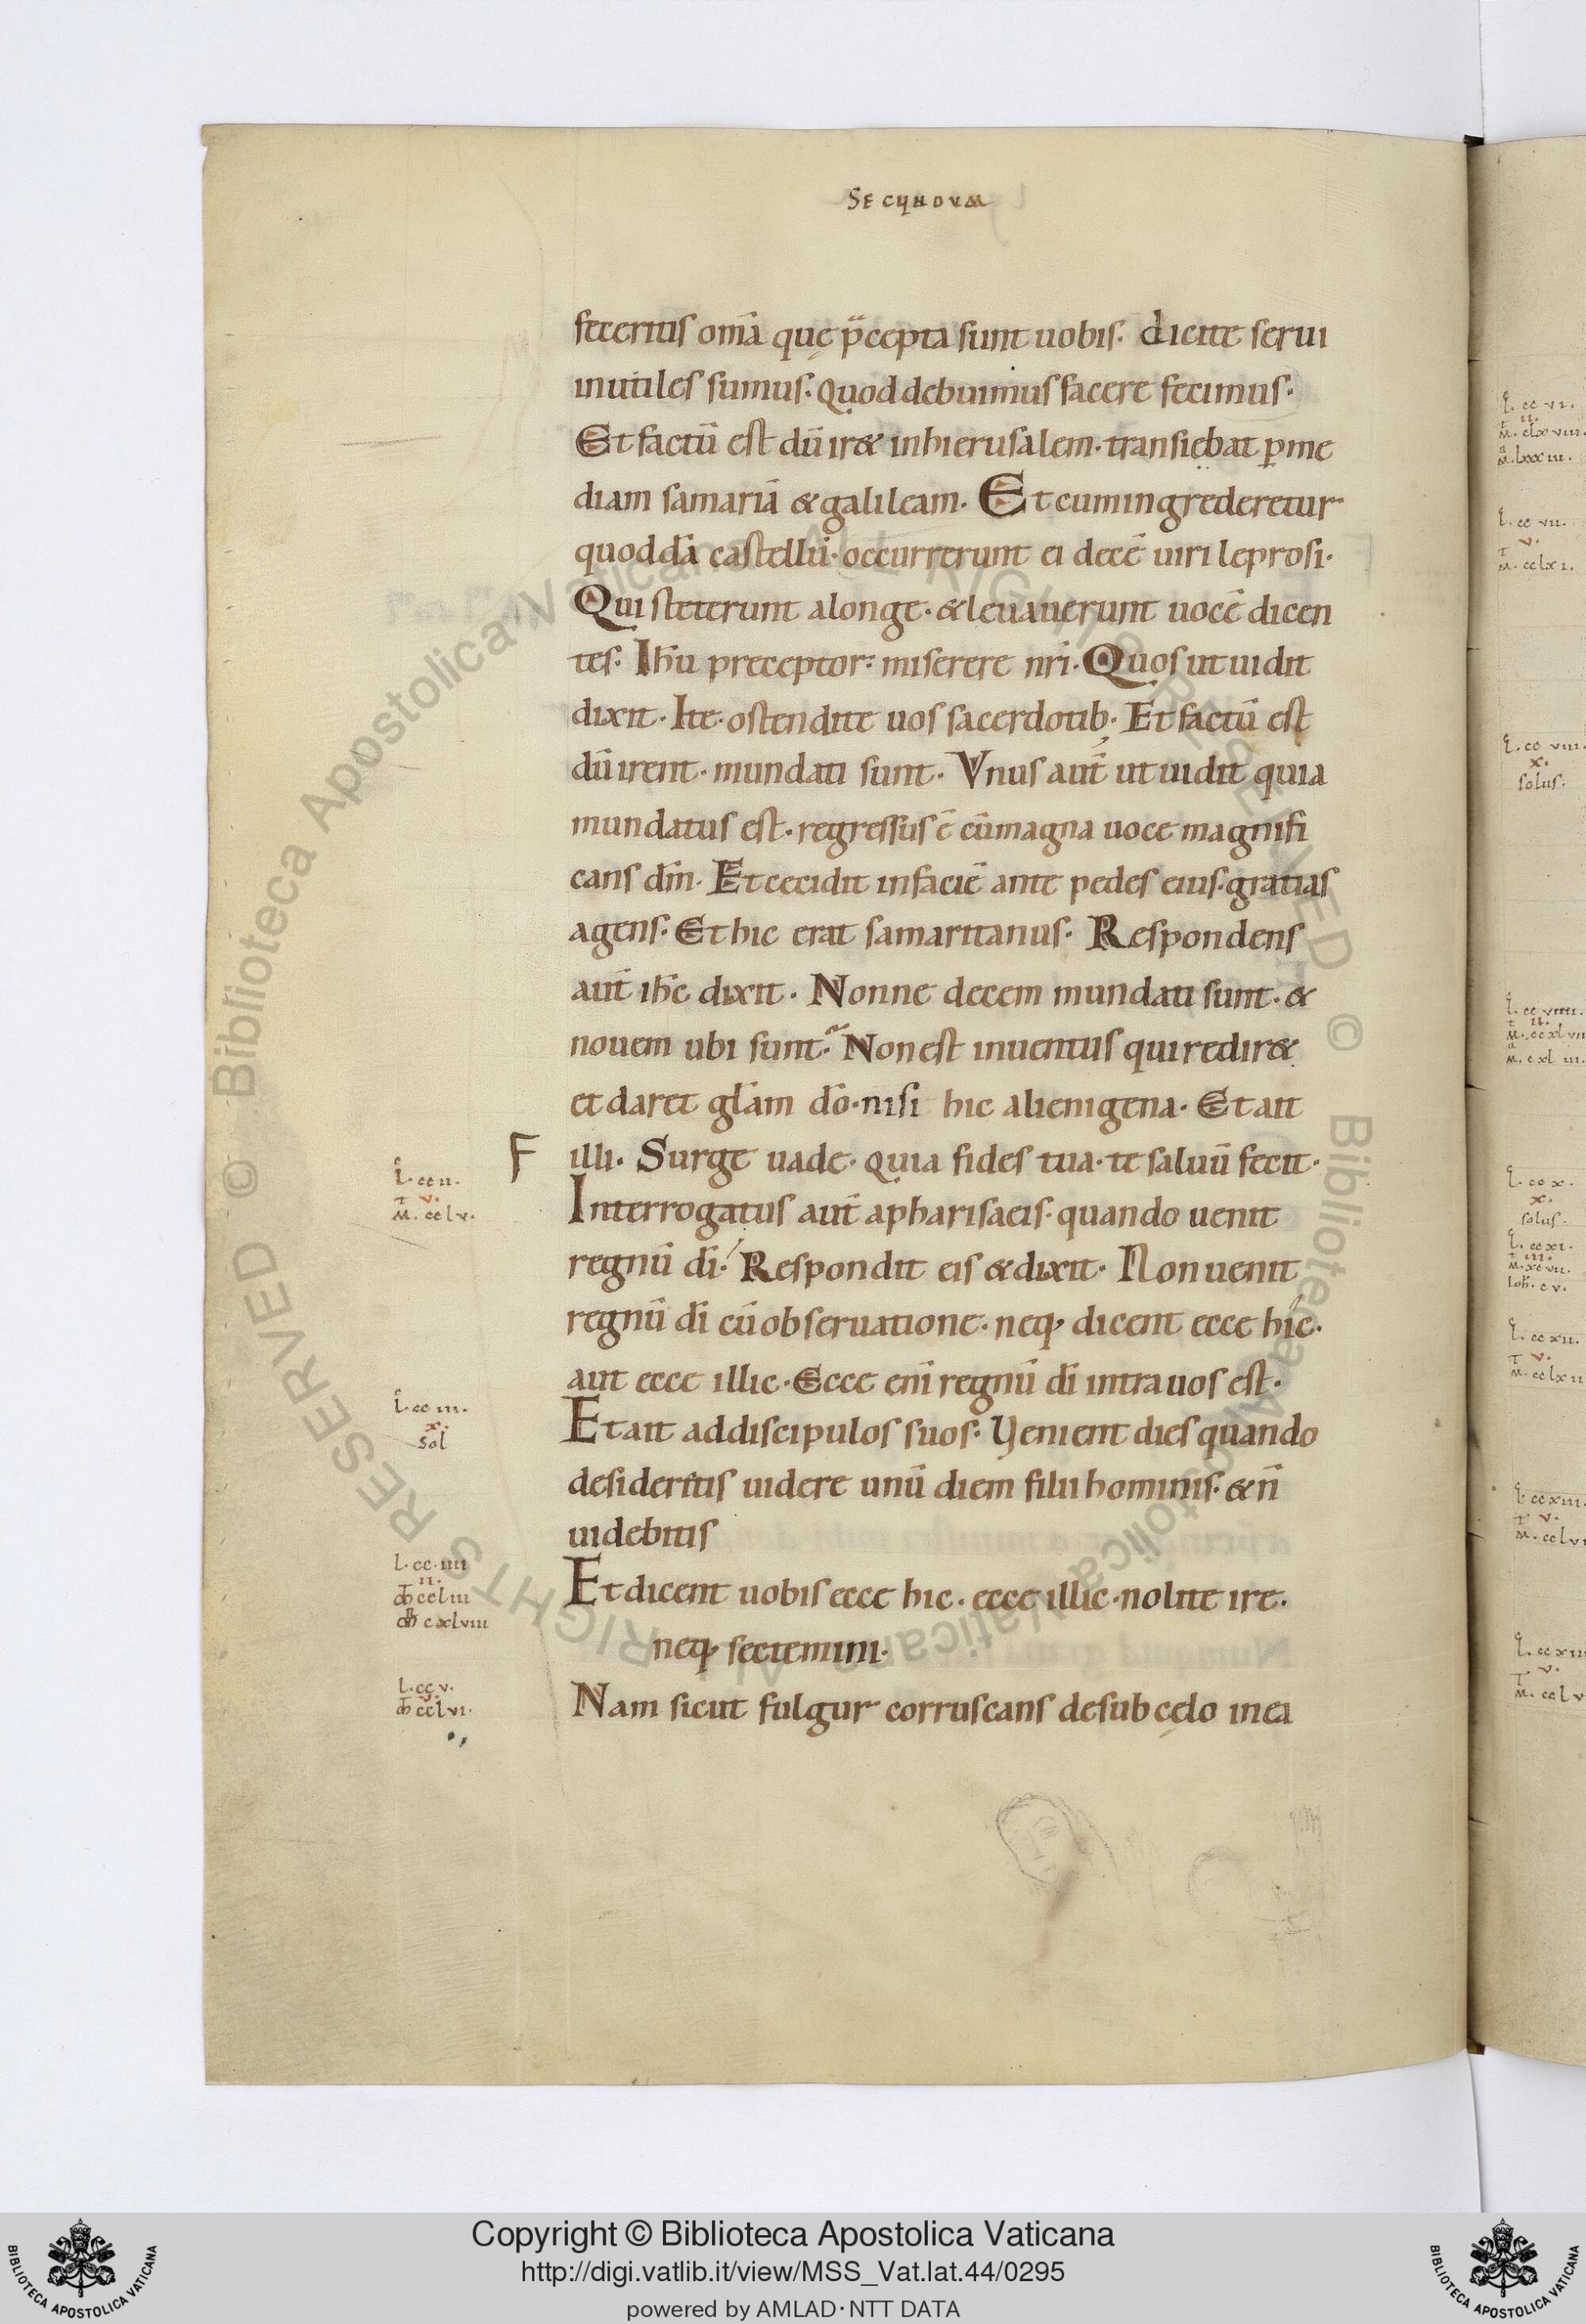 SECUNDUM
feceritis om̄a quę p̄cepta sunt uobis. dicite serui
inutiles sumus. quod debuimus facere fecimus.
Et factū est dū ir& in hierusalem. transiebat ꝑ me
diam samariā & galileam. Et cum ingrederetur
quoddā castellū. occurrerunt ei decē uiri leprosi.
Qui steterunt alonge. & leuauerunt uocē dicen
tes. Ih̄u preceptor. miserere nr̄i. Quos ut uidit
dixit. Ite. ostendite uos sacerdotib; Et factū est
dū irent. mundati sunt. Vnus aut̄ ut uidit quia
mundatus est. regressus ē cū magna uoce magnifi
cans dm̄. Et cecidit in faciē ante pedes eius. gratias
agens. Et hic erat samaritanus. Respondens
aut̄ ih̄c dixit. Nonne decem mundati sunt. &
nouem ubi sunt. Non est inuentus qui redir&
et daret gl̄am dō. nisi hic alienigena. Et ait
F illi. Surge uade. quia fides tua. te saluū fecit.
L. cc ii.
v.
M. cclv.
Interrogatus aut̄ apharisaeis. quando uenit
regnū dī. Respondit eis & dixit. Non uenit
regnū dī cū obseruatione. neq; dicent ecce hic.
aut ecce illic. Ecce enī regnū dī intra uos est.
L. cc iii.
x.
sol
Et ait ad discipulos suos. Venient dies quando
desideretis uidere unū diem filii hominis. & n̄
uidebitis
L. cc. iiii
ii.
ccliii
cxlviii
Et dicent uobis ecce hic. ecce illic. nolite ire.
neq; sectemini.
L. cc v.
v.
cclvi.
Nam sicut fulgur corruscans desub cęlo in ea
L. cc vi.
ii.
M. clxviii.
M. lxxiii.
L. cc vii.
v.
M. cclxi.
L. cc viii.
x.
solus.
L. cc viiii.
ii.
M. ccxlvii
M. cxliii.
L. cc x.
x.
solus.
L. cc xi.
iii.
M. xcvii.
Ioh̄. cv.
L. cc xii.
v.
M. cclxii
L. cc xiii.
v.
M. cclvi
L. cc xiii
v.
M. cclv
© Biblioteca Apostolica Vaticana ALL RIGHTS RESERVED © Biblioteca Apostolica Vaticana ALL RIGHTS RESERVED
Copyright © Biblioteca Apostolica Vaticana
http://digi.vatlib.it/view/MSS_Vat.lat.44/0295
powered by AMLAD·NTT DATA
BIBLIOTECA APOSTOLICA VATICANA
BIBLIOTECA APOSTOLICA VATICANA